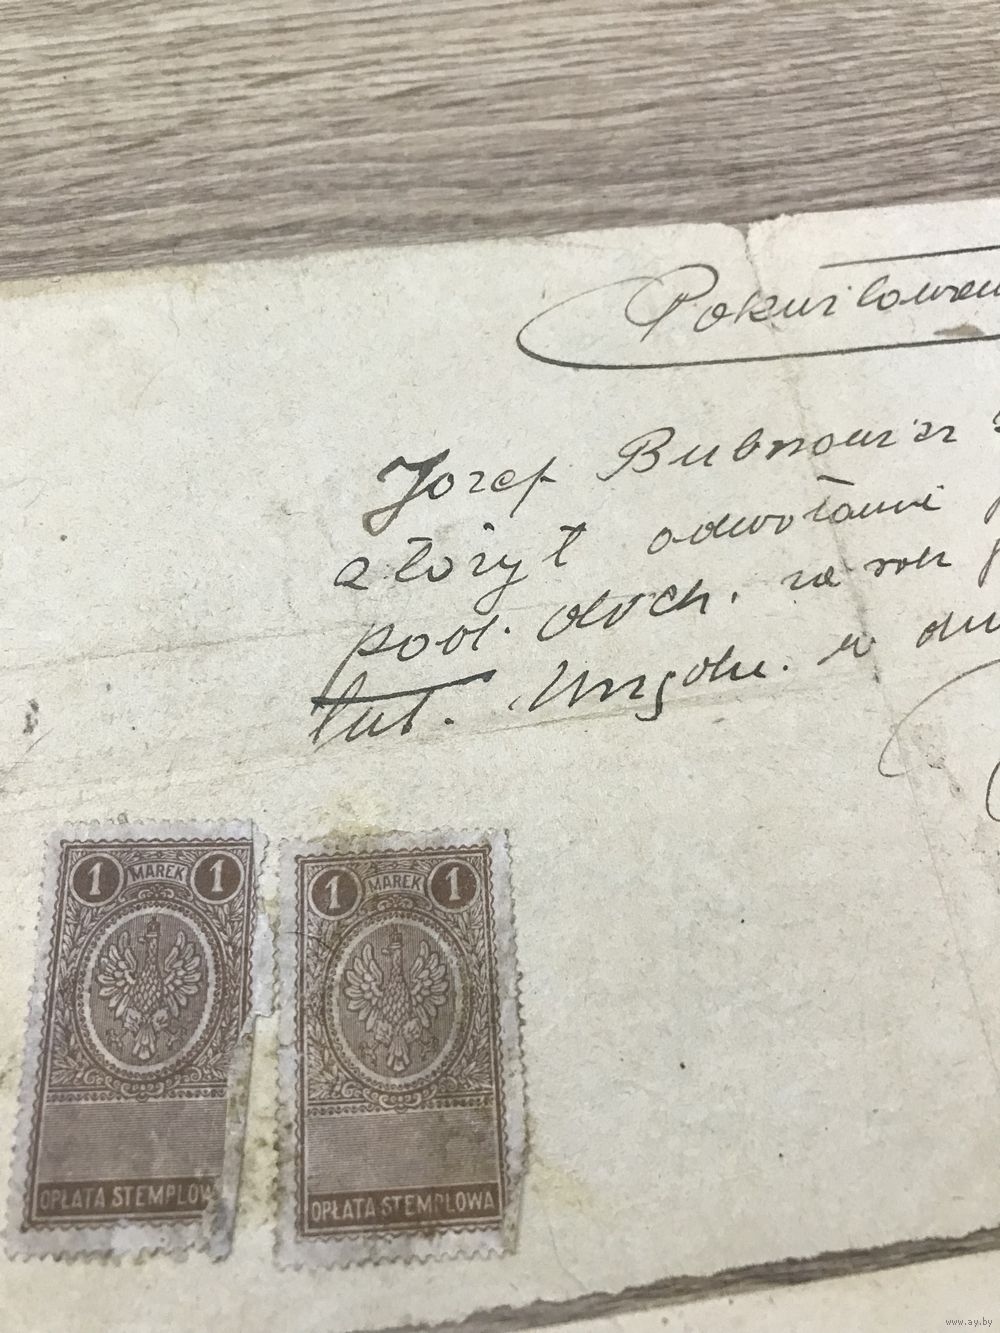 Pokwitowan
Jozef Bubnowicz
złożył odwołanie
pod. doch. za rok
tut. Urzędu. w dni
1 MAREK 1
OPŁATA STEMPLOW
1 MAREK 1
OPŁATA STEMPLOWA
www.ay.by